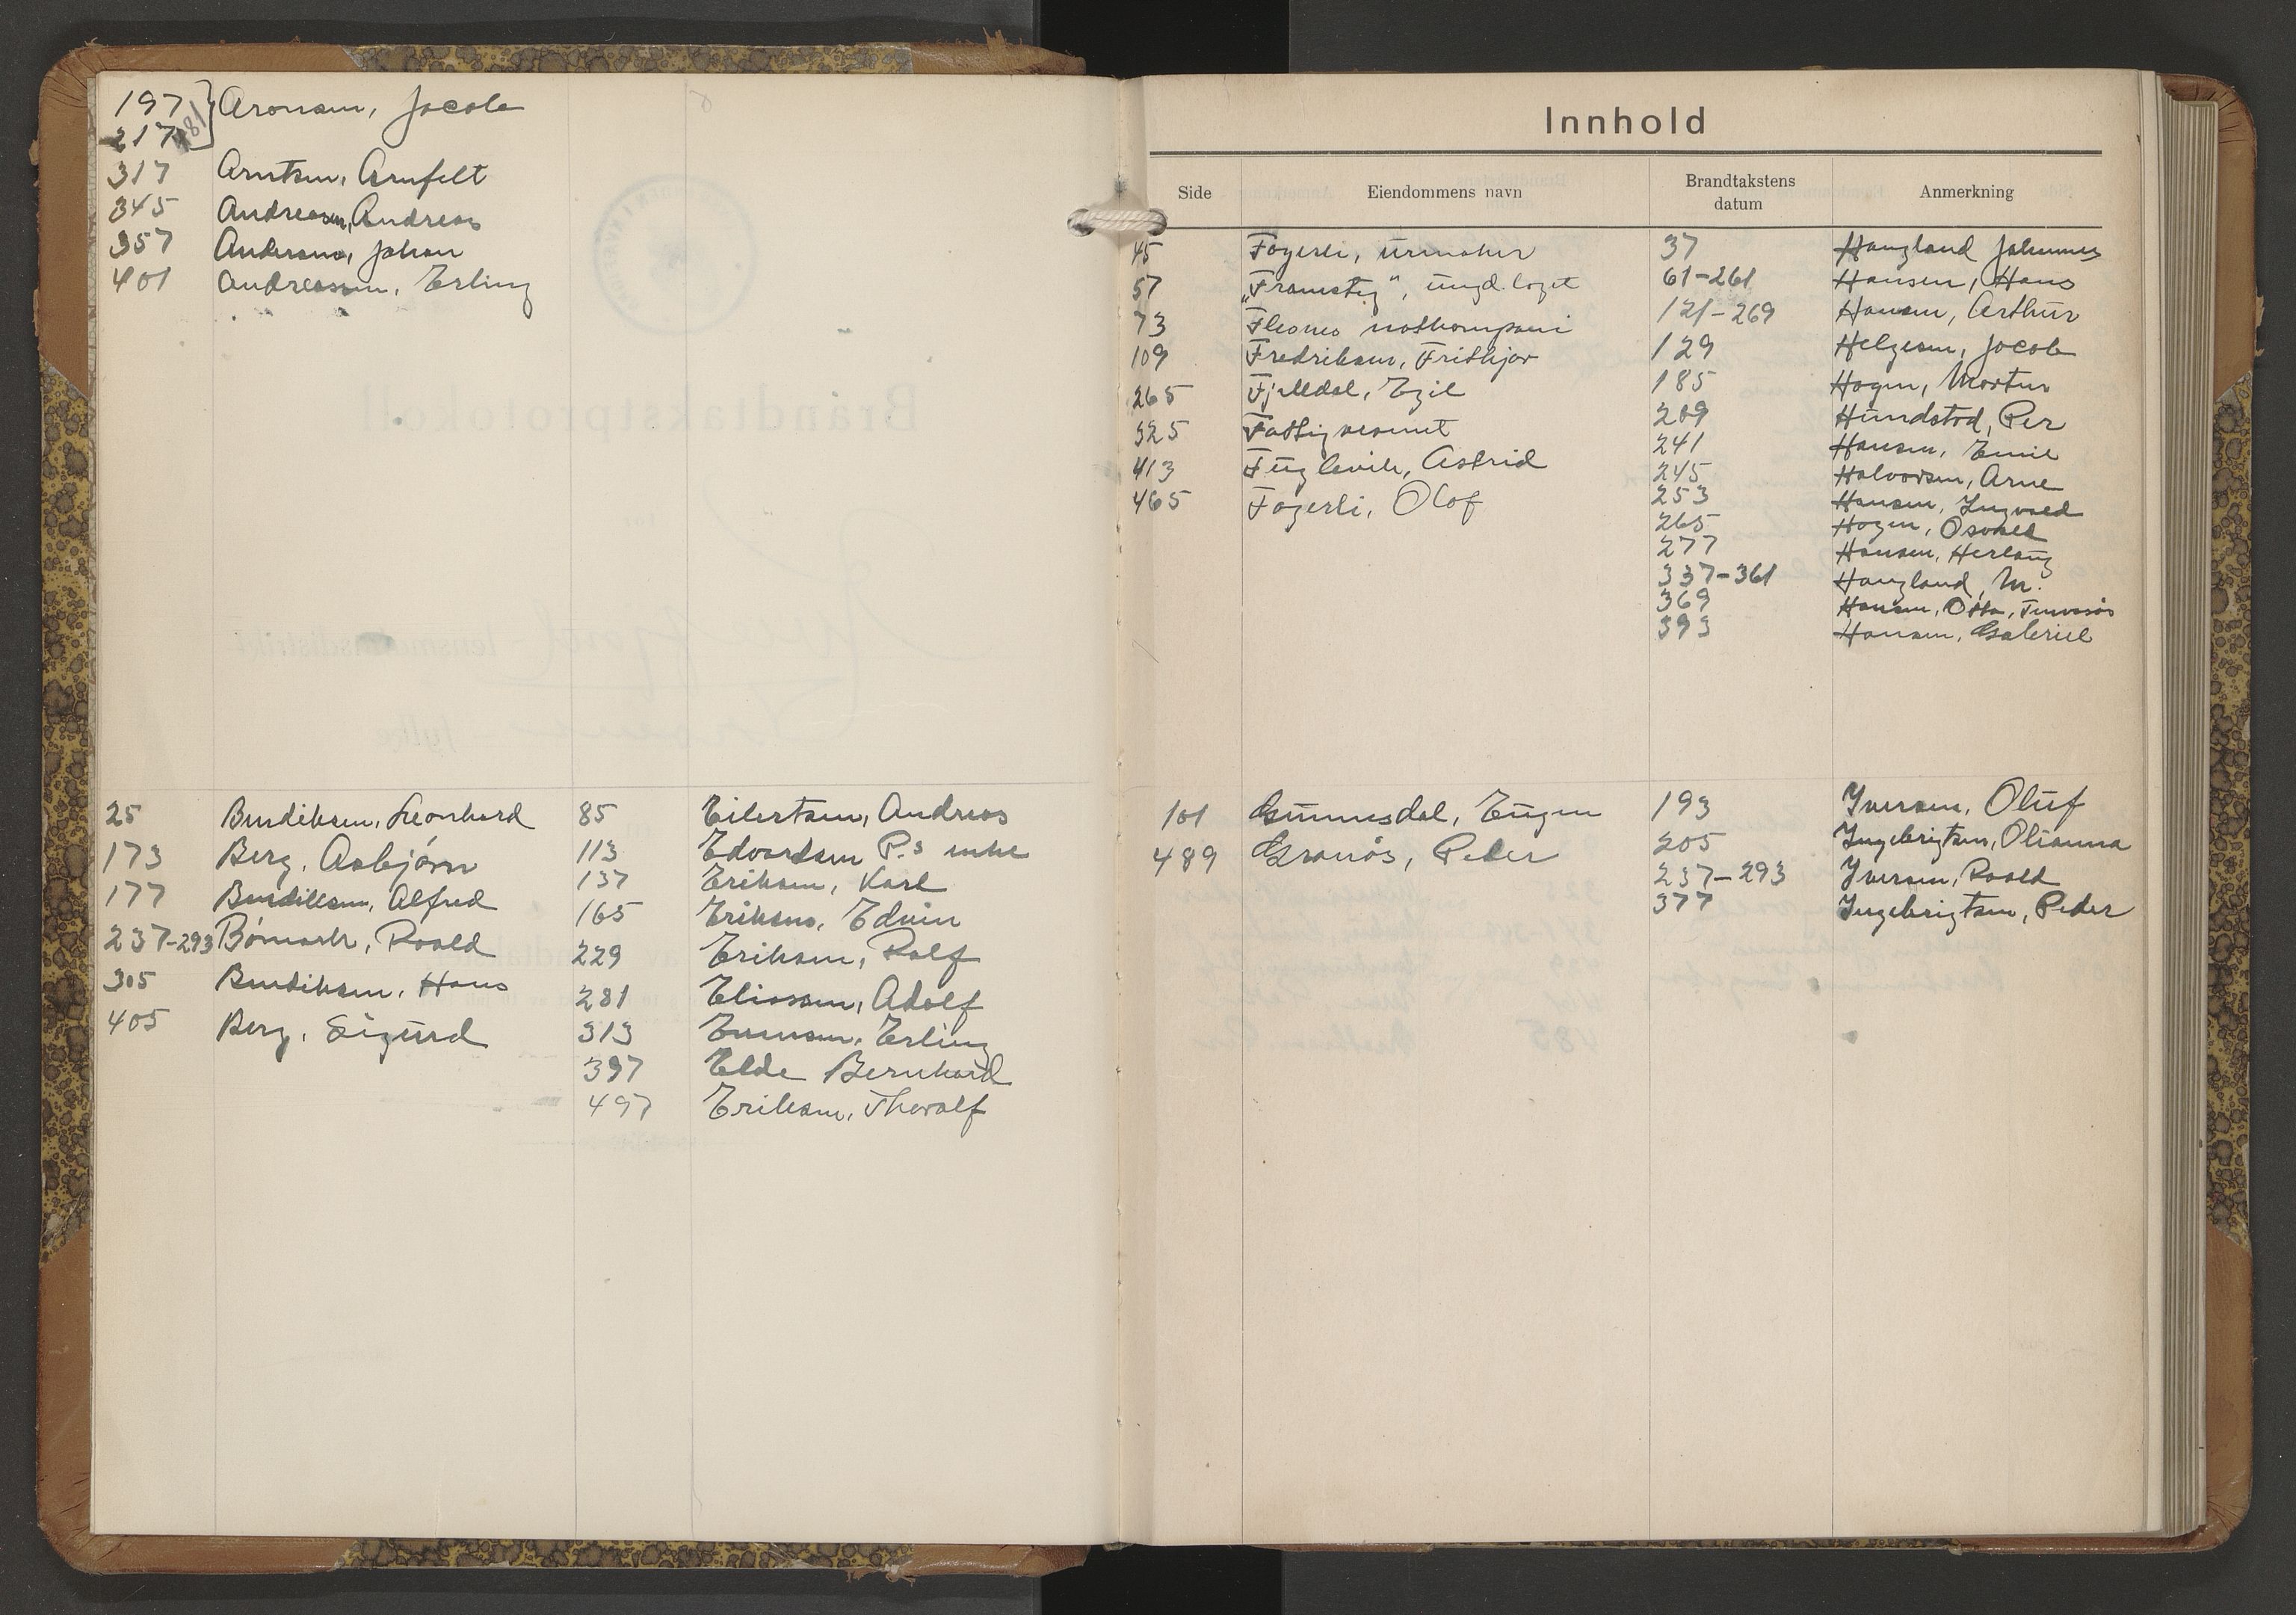 197 Aronsen, Jacob
217 481
317 Arntsen, Arnfelt
345 Andreassen, Andreas
357 Andersens, Johan
401 Andreassen, Erling
25 Bendiksen, Leonhard
173 Berg, Asbjörn
177 Bendiksen, Alfred
237-293 Bömark, Roald
305 Bendiksen, Hans
405 Berg, Sigurd
85 Eilertsen, Andreas
113 Edvardsen P.s enke
137 Eriksen, Karl
165 Eriksens, Edvin
229 Eriksen, Ralf
281 Eliassen, Adolf
313 Evensen, Erling
397 Elde Bernhard
497 Eriksen, Thoralf
Innhold
Side Eiendommens navn Brandtakstens datum Anmerkning
45 Fagerli, urmaker
57 „Framsteg", ungd.laget
73 Flesnes notkompani
109 Fredriksen, Frithjov
265 Fjelldal, Egil
325 Fattigvesenet
413 Fuglevik, Astrid
465 Fagerli, Olaf
37 Haugland Johannes
61-261 Hansen, Hans
121-269 Hansen, Arthur
129 Helgesen, Jacob
185 Hagen, Morten
209 Hundstad, Per
241 Hansen, Emil
245 Halvorsen, Arne
253 Hansen, Ingvald
265 Hagen, Osvald
277 Hansen, Herlaug
337-361 Haugland, M.
369 Hansen, Otto,
393 Hansen, Gabriel
101 Gunnesdal, Eugen
489 Granås, Peder
193 Iversen, Oluf
205 Ingebrigtsen, Olianna
237-293 Iversen, Roald
377 Ingebrigtsen, Peder